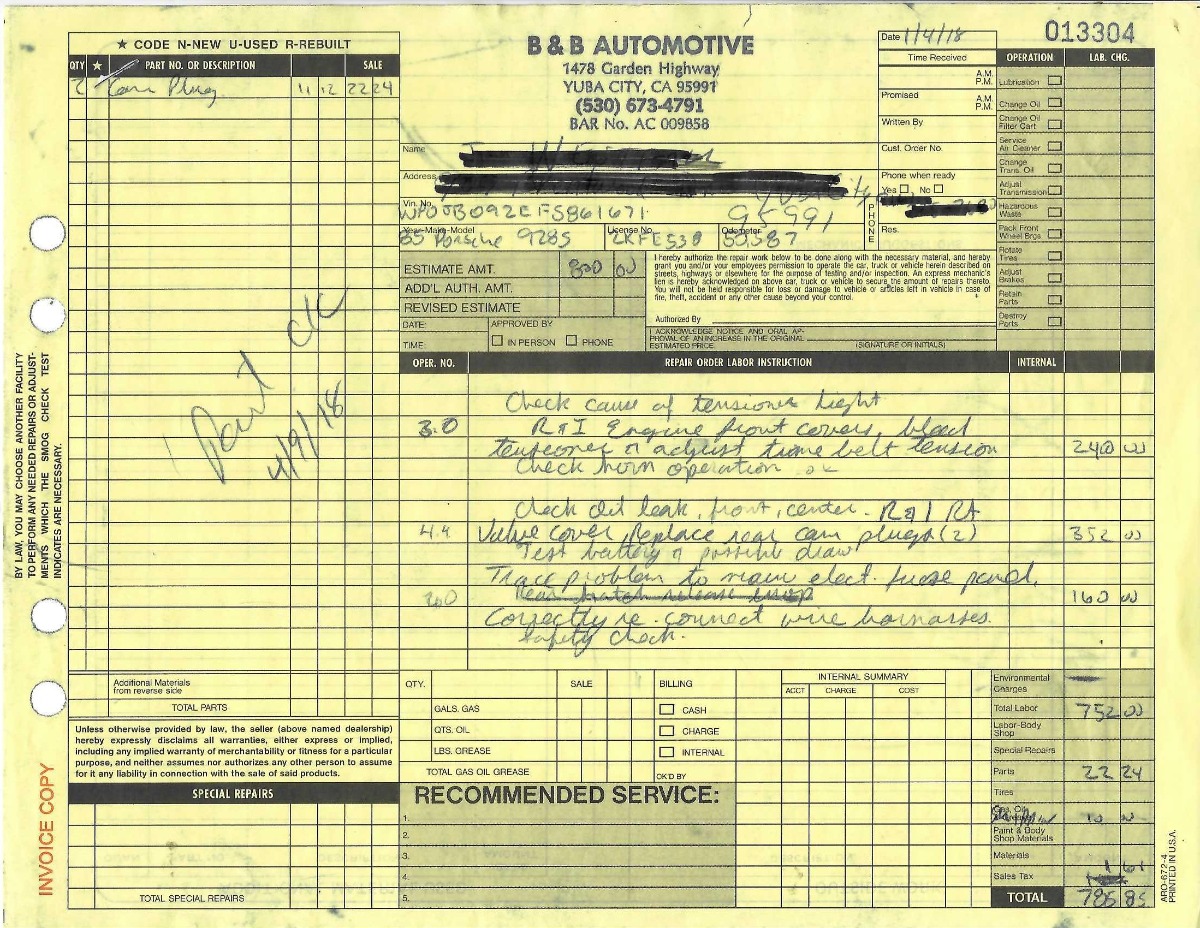 ★ CODE N-NEW U-USED R-REBUILT
QTY ★ PART NO. OR DESCRIPTION SALE
2 Cam Plug 11 12 22 24
B & B AUTOMOTIVE
1478 Garden Highway
YUBA CITY, CA 95991
(530) 673-4791
BAR No. AC 009858
013304
Date 1/4/18
Time Received
A.M.
P.M.
Promised
A.M.
P.M.
Written By
Cust. Order No.
Phone when ready
Yes No
PHONE
Res.
Name
Address
95991
Vin. No.
WP0JB092EFS861671
Year-Make-Model License No. Odometer
85 Porsche 928S 2KFE538 53,587
ESTIMATE AMT. 800 00
ADD'L AUTH. AMT.
REVISED ESTIMATE
DATE: APPROVED BY
TIME: IN PERSON PHONE
I hereby authorize the repair work below to be done along with the necessary material, and hereby
grant you and/or your employees permission to operate the car, truck or vehicle herein described on
streets, highways or elsewhere for the purpose of testing and/or inspection. An express mechanic's
lien is hereby acknowledged on above car, truck or vehicle to secure the amount of repairs thereto.
You will not be held responsible for loss or damage to vehicle or articles left in vehicle in case of
fire, theft, accident or any other cause beyond your control.
Authorized By
I ACKNOWLEDGE NOTICE AND ORAL AP-
PROVAL OF AN INCREASE IN THE ORIGINAL
ESTIMATED PRICE. (SIGNATURE OR INITIALS)
OPERATION LAB. CHG.
Lubrication
Change Oil
Change Oil
Filter Cart
Service
Air Cleaner
Change
Trans. Oil
Adjust
Transmission
Hazardous
Waste
Pack Front
Wheel Brgs
Rotate
Tires
Adjust
Brakes
Retain
Parts
Destroy
Parts
OPER. NO. REPAIR ORDER LABOR INSTRUCTION INTERNAL
Check cause of tensioner light
3.0 R&I Engine front covers, bleed
tensioner & adjust time belt tension 240 00
Check horn operation ok
Check oil leak, front, center. R&I Rt
4.4 Valve cover, Replace rear cam plugs (2) 352 00
Test battery & possible draw
Trace problem to main elect. fuse panel.
2.0 Rear hatch release inop 160 00
Correctly re-connect wire harnasses.
Safety check.
Paid ck
4/9/18
BY LAW, YOU MAY CHOOSE ANOTHER FACILITY
TO PERFORM ANY NEEDED REPAIRS OR ADJUST-
MENTS WHICH THE SMOG CHECK TEST
INDICATES ARE NECESSARY.
INVOICE COPY
Additional Materials
from reverse side
TOTAL PARTS
Unless otherwise provided by law, the seller (above named dealership)
hereby expressly disclaims all warranties, either express or implied,
including any implied warranty of merchantability or fitness for a particular
purpose, and neither assumes nor authorizes any other person to assume
for it any liability in connection with the sale of said products.
SPECIAL REPAIRS
TOTAL SPECIAL REPAIRS
QTY. SALE BILLING
GALS. GAS CASH
QTS. OIL CHARGE
LBS. GREASE INTERNAL
TOTAL GAS OIL GREASE OK'D BY
INTERNAL SUMMARY
ACCT CHARGE COST
RECOMMENDED SERVICE:
1.
2.
3.
4.
5.
Environmental
Charges
Total Labor 752 00
Labor-Body
Shop
Special Repairs
Parts 22 24
Tires
Gas, Oil 10 00
Paint & Body
Shop Materials
Materials
Sales Tax 1 61
TOTAL 785 85
ARO-672-4
PRINTED IN U.S.A.